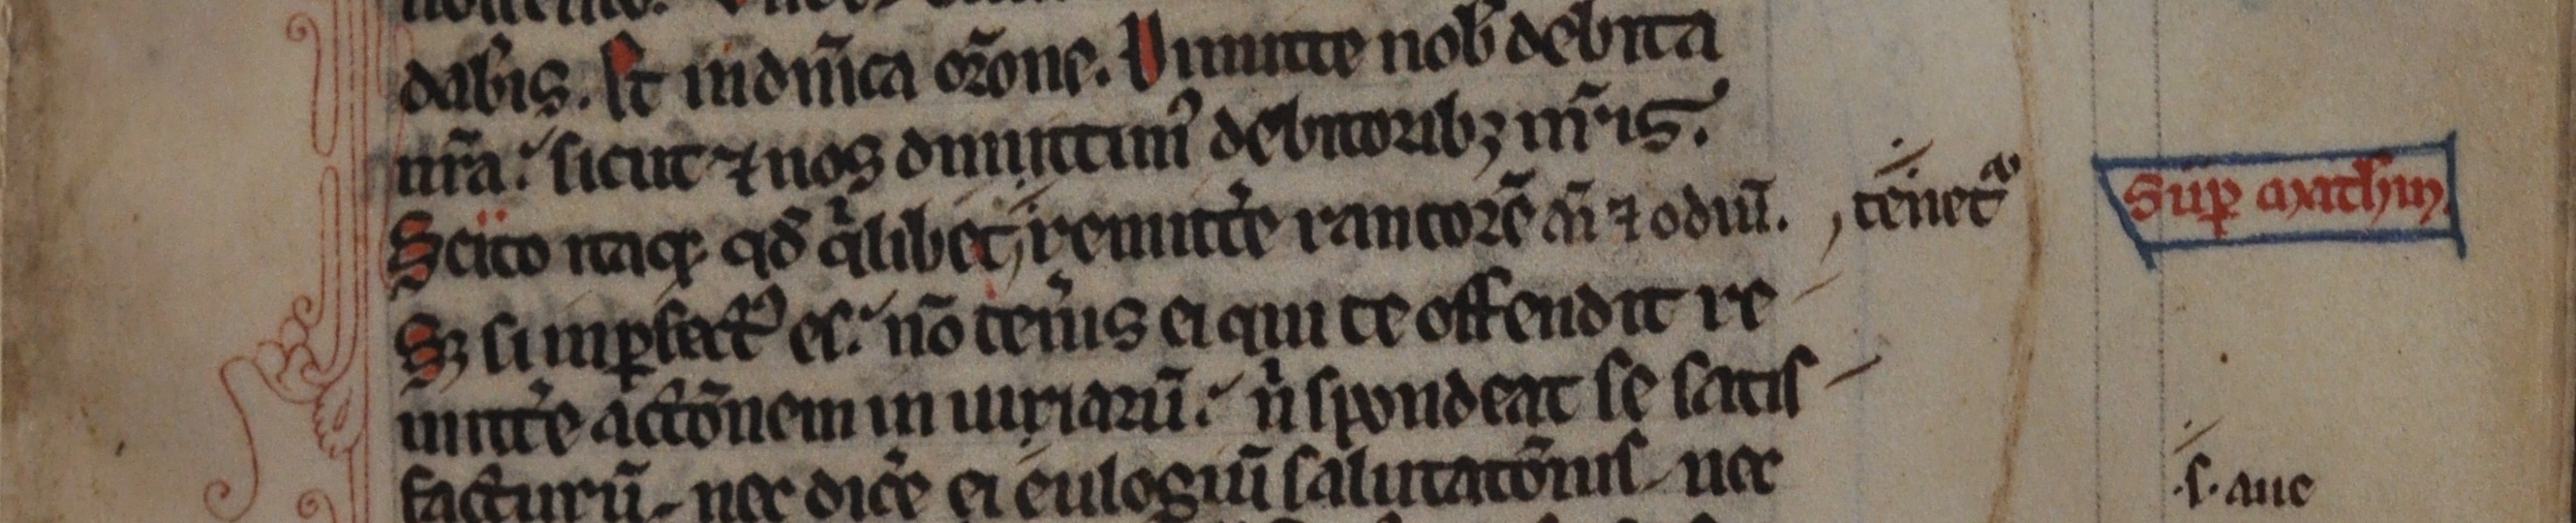 dabis. Et in dn̄ica or̄one. Dimitte nob̄ debita
nr̄a. sicut ⁊ nos dimittim᷒ debitorib; nr̄is.
Scito itaq; qd̄ q̇libet, remitt̄e rancorē aī ⁊ odiū. , tenet᷑ Sup̱ math̄m
S; si imp̱fect᷒ es. nō ten̄is ei qui te offendit re
mitt̄e acc̄onem iniuriarū. n̓ spondeat se satis
facturū. nec dic̄e ei eulogiū salutat̄onis. nec .s. aue